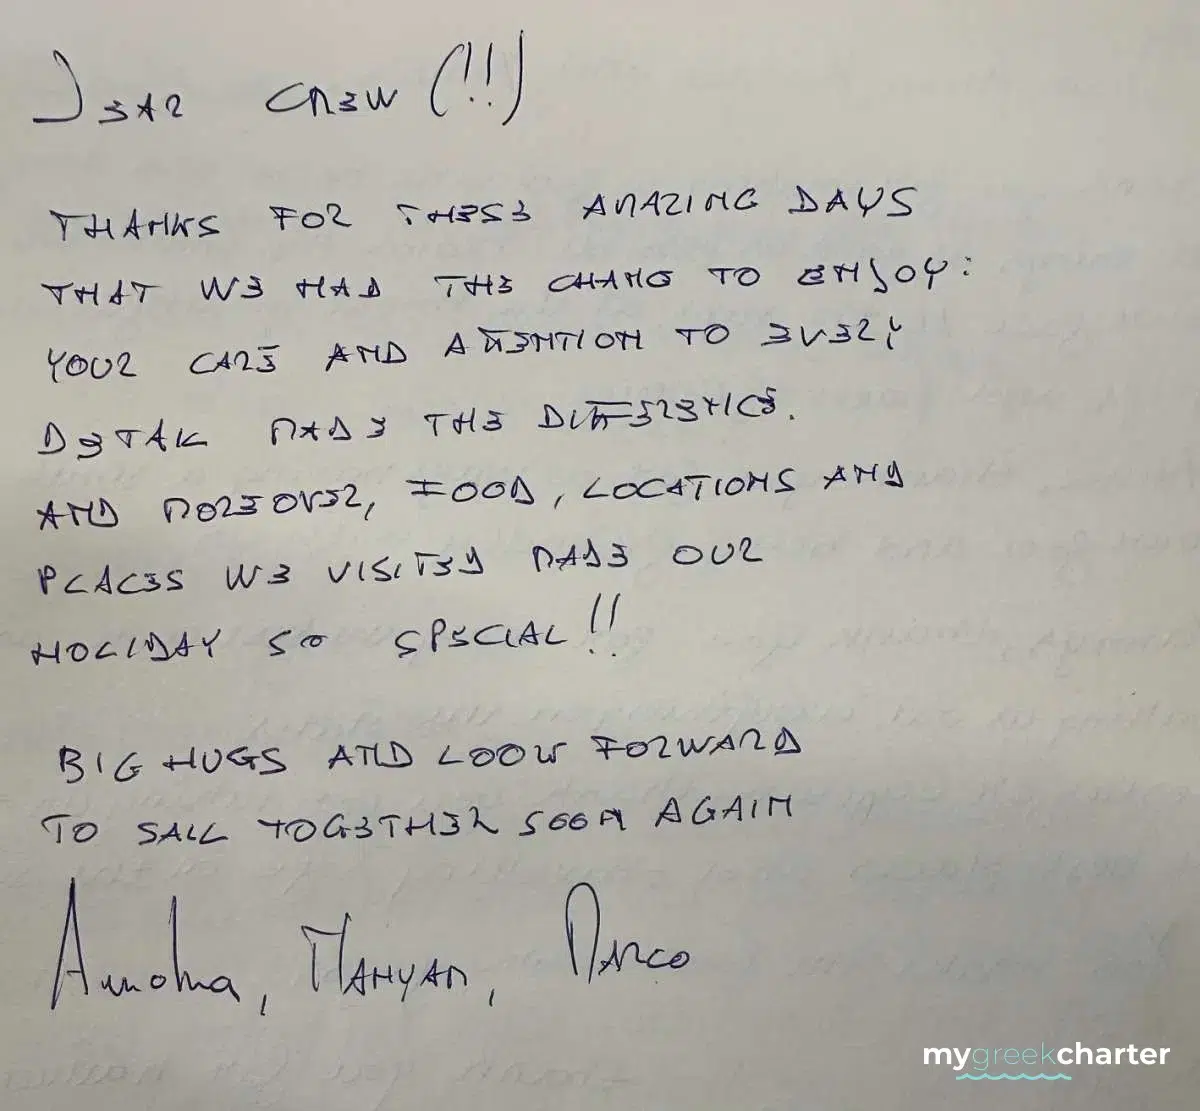 DEAR CREW (!!)
THANKS FOR THESE AMAZING DAYS
THAT WE HAD THE CHANG TO ENJOY:
YOUR CARE AND ATTENTION TO EVERY
DETAIL MADE THE DIFFERENCE.
AND MOREOVER, FOOD, LOCATIONS AND
PLACES WE VISITED MADE OUR
HOLIDAY SO SPECIAL!!
BIG HUGS AND LOOK FORWARD
TO SAIL TOGETHER SOON AGAIN
MARCO
mygreekcharter